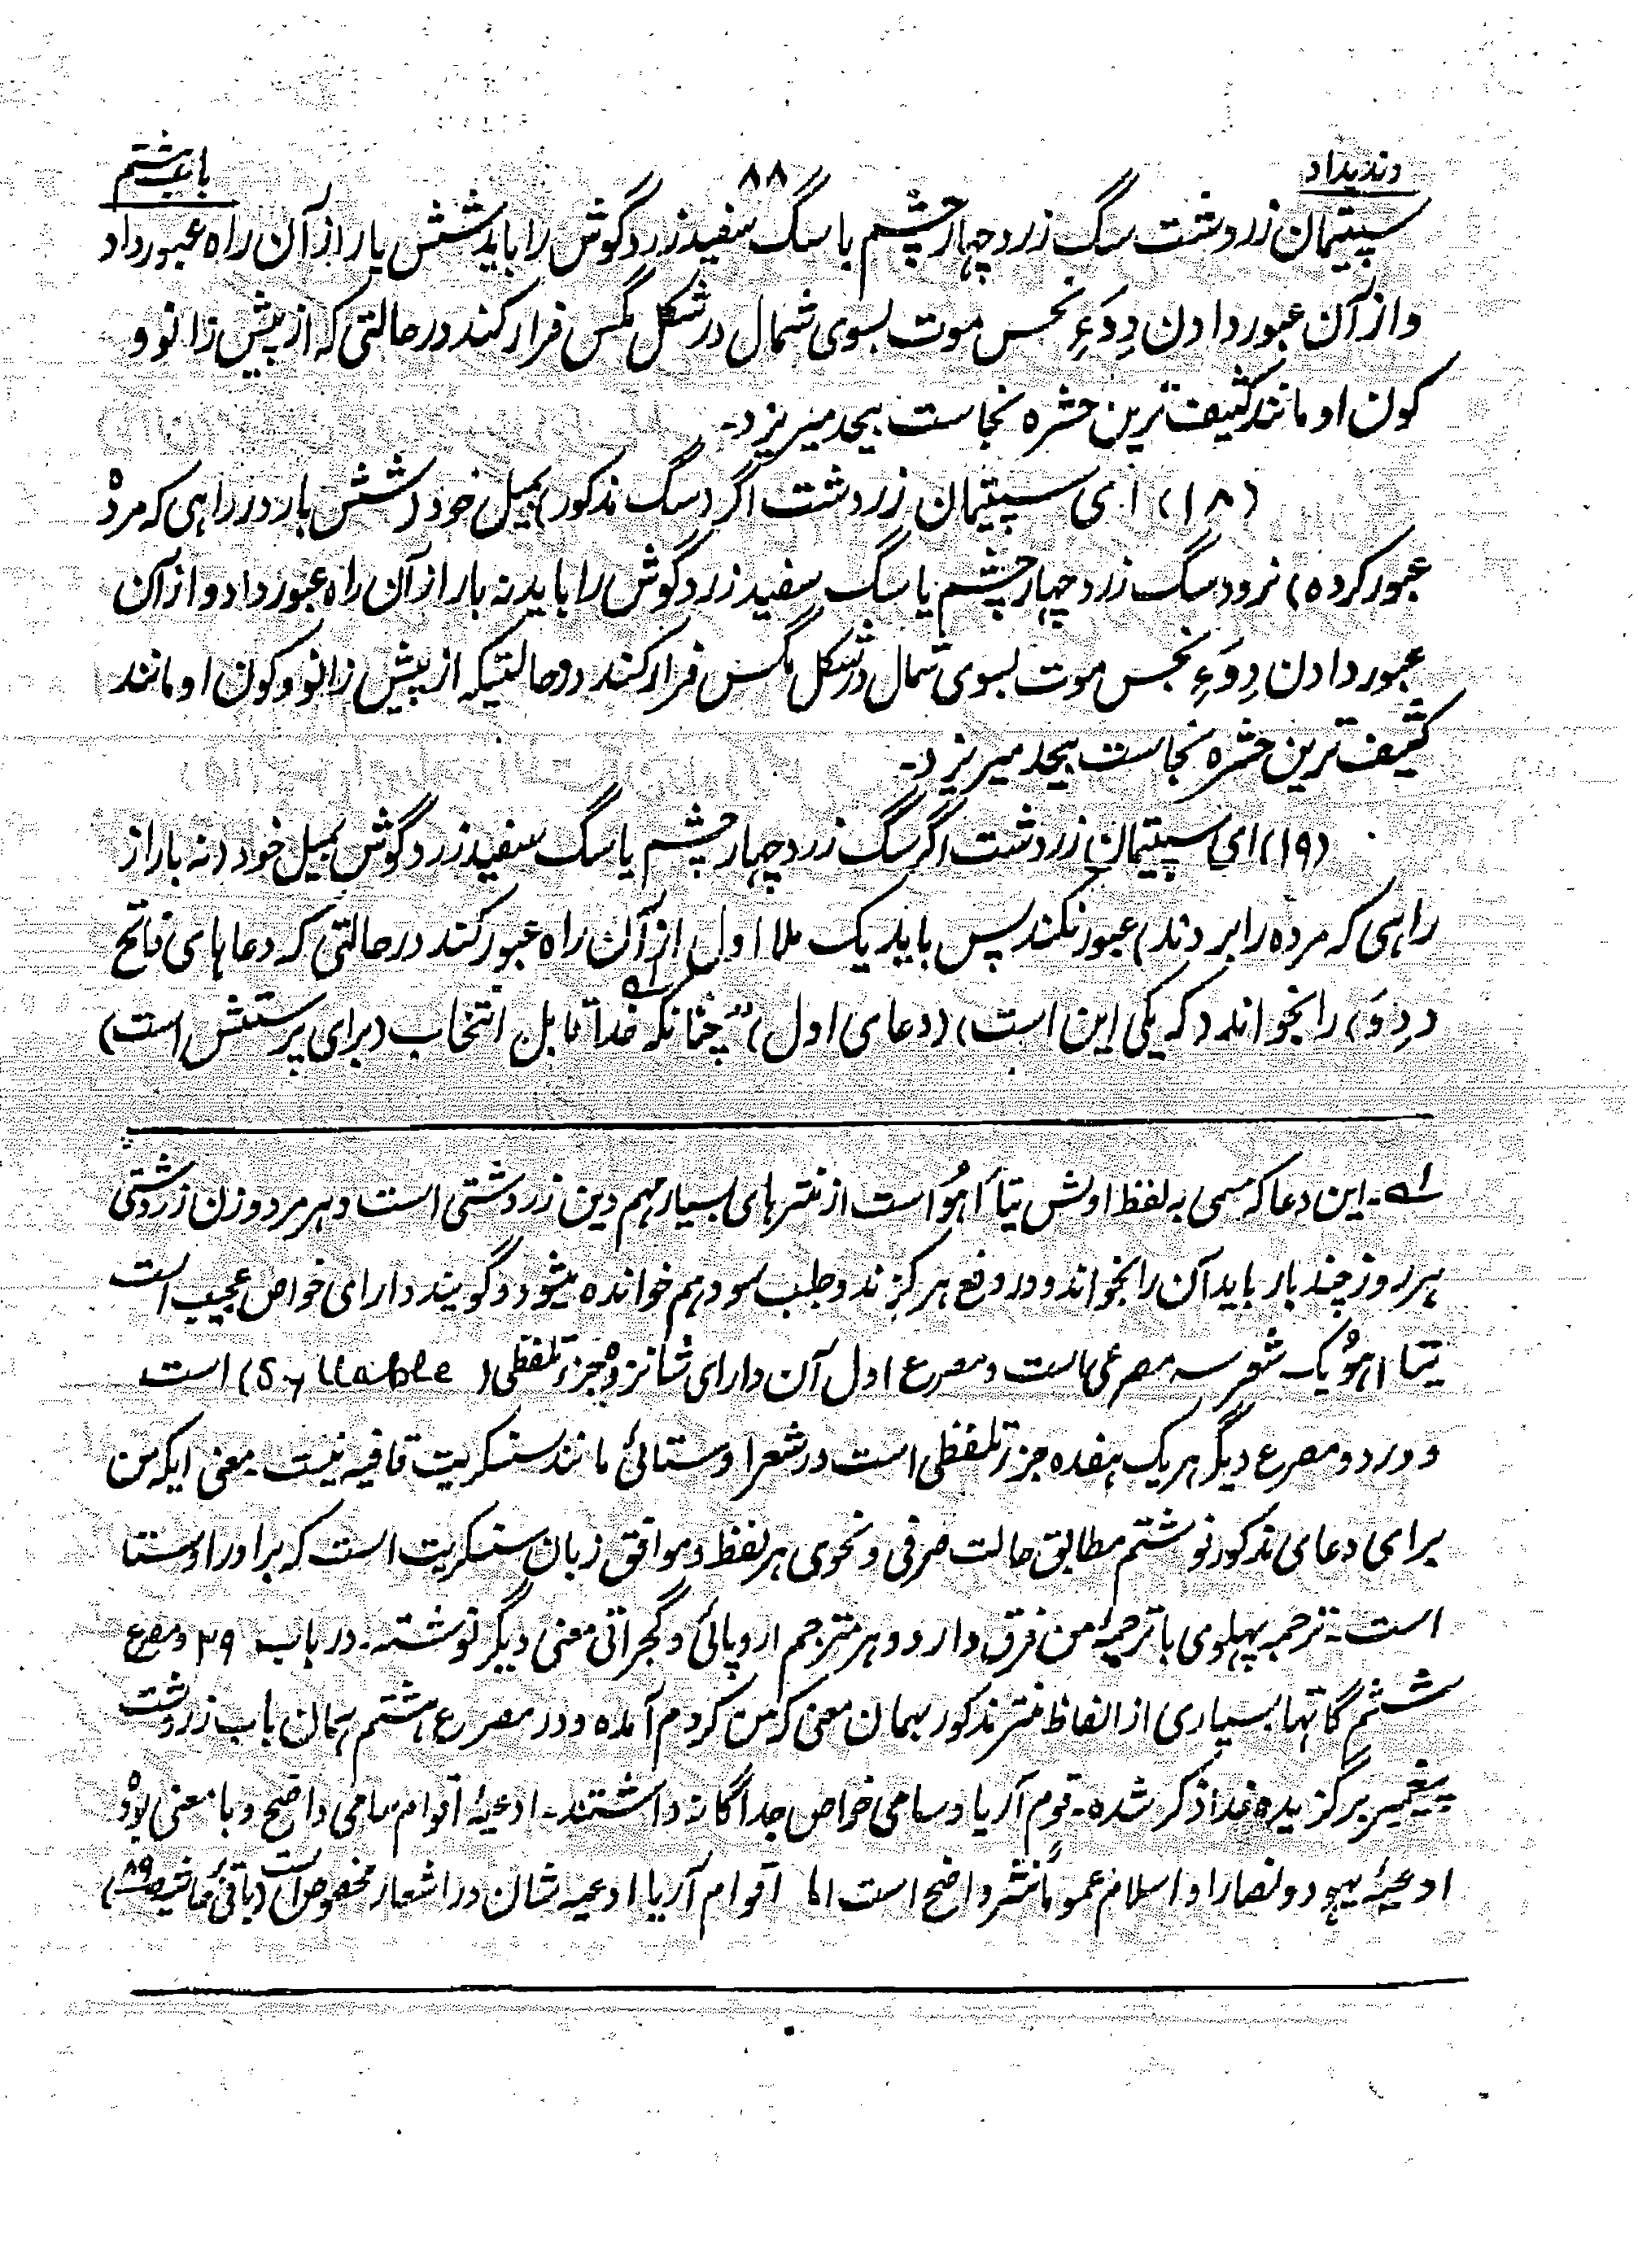 وندیداد
۸۸
باب هشتم
سپتیمان زردشت سگ زرد چهار چشم با سگ سفید زرد گوش را باید شش بار از آن راه عبور داد
و از آن عبور دادن دِوَءِ نجس موت بسوی شمال در شکل مگس فرار کند در حالتی که از پیش زانو و
کون او مانند کثیف ترین حشره نجاست بیحد میریزد-
(۱۸) ای سپتیمان زردشت اگر (سگ مذکور) بمیل خود (شش بار در راهی که مرده
عبور کرده) نرود سگ زرد چهار چشم یا سگ سفید زرد گوش را باید نه بار از آن راه عبور داد و از آن
عبور دادن دِوَءِ نجس موت بسوی شمال در شکل مگس فرار کند در حالتیکه از پیش زانو و کون او مانند
کثیف ترین حشره نجاست بیحد میریزد-
(۱۹) ای سپتیمان زردشت اگر سگ زرد چهار چشم یا سگ سفید زرد گوش بمیل خود (نه بار از
راهی که مرده را بردند) عبور نکند پس باید یک ملا اول از آن راه عبور کند در حالتی که دعاهای فاتح
(دِوَ) را بخواند (که یکی این است) (دعای اول) "چنانکه خدا قابل انتخاب (برای پرستش است)
۱ه-این دعا که مسمی به لفظ اوش یتاَ اهوُ است از منترهای بسیار مهم دین زردشتی است و هر مرد و زن زردشتی
هر روز چند بار باید آن را بخواند و در دفع هر گزند و جلب سود هم خوانده میشود و گویند دارای خواص عجیب است
یتا اهوُ یک شعر سه مصرعی است و مصرع اول آن دارای شانزده جزء تلفظی (Syllable) است
و در دو مصرع دیگر هر یک هفده جزء تلفظی است در شعر اوستائی مانند سنسکریت قافیه نیست- معنی ایکه من
برای دعای مذکور نوشتم مطابق حالت صرفی و نحوی هر لفظ و موافق زبان سنسکریت است که برادر اوستا
است- ترجمه پهلوی با ترجمهٔ من فرق دارد و هر مترجم اروپائی و گجراتی معنی دیگر نوشته- در باب ۲۹ و مصرع
ششم گاتها بسیاری از الفاظ منتر مذکور بهمان معنی که من کردم آمده و در مصرع هشتم همان باب زردشت
پیغمبر برگزیده خدا ذکر شده- قوم آریا و سامی خواص جداگانه داشتند- ادعیهٔ اقوام سامی واضح و با معنی بوده
ادعیهٔ یهود و نصارا و اسلام عموماً نثر واضح است اما اقوام آریا ادعیه شان در اشعار مخصوص است (باقی حاشیه ص ۸۹)